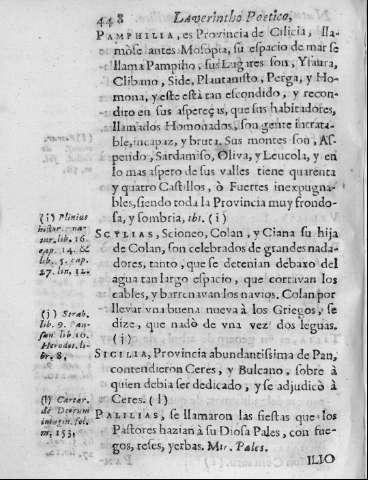 448 Laverintho Poetico,
PAMPHILIA, es Provincia de Cilicia, lla-
mòse antes Mosopia, su espacio de mar se
llama Pampiho, sus Lugares son, Ysaura,
Clibano, Side, Plautanisto, Perga, y Ho-
mona, y este està tan escondido, y recon-
dito en sus aspereças, que sus habitadores,
llamados Homonados, son gente intrata-
ble, incapaz, y bruta. Sus montes son, As-
pendo, Sardamiso, Oliva, y Leucola, y en
lo mas aspero de sus valles tiene quarenta
y quatro Castillos, ò Fuertes inexpugna-
bles, siendo toda la Provincia muy frondo-
sa, y sombria, ibi. (i)
(i) Plinius
histor. na-
tur. lib. 16.
cap. 14. &
lib. 5. cap.
27. lin. 32.
SCYLIAS, Scioneo, Colan, y Ciana su hija
de Colan, son celebrados de grandes nada-
dores, tanto, que se detenian debaxo del
agua tan largo espacio, que cortavan los
cables, y barrenavan los navios. Colan por
llevar vna buena nueva à los Griegos, se
dize, que nadò de vna vez dos leguas.
(j)
(j) Strab.
lib. 9. Pau-
san lib. 10.
Herodot. li-
br. 8.
SICILIA, Provincia abundantissima de Pan,
contendieron Ceres, y Bulcano, sobre à
quien debia ser dedicado, y se adjudicò à
Ceres. (l)
(l) Cartar.
de Deorum
imagin. fol.
m. 153.
PALILIAS, se llamaron las fiestas que los
Pastores hazian à su Diosa Pales, con fue-
gos, reses, yerbas. Mir. Pales.
ILIO